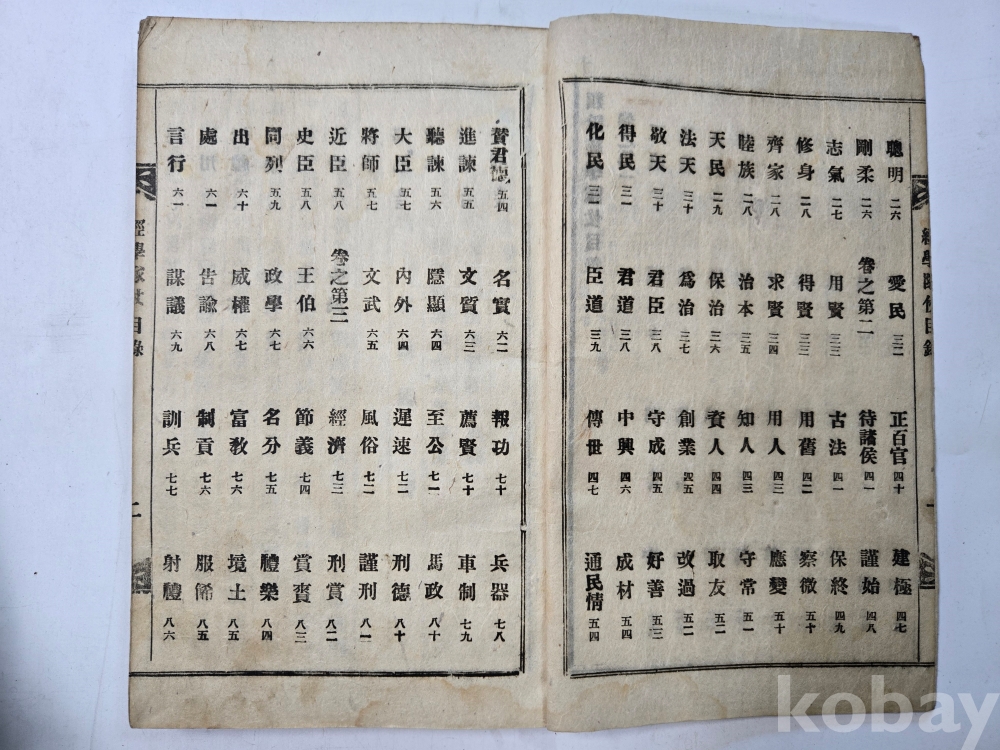 經學隊仗目錄
一
聰明 二六
剛柔 二六
志氣 二七
修身 二八
齊家 二八
睦族 二八
天民 二九
法天 三十
敬天 三十
得民 三一
化民 三一
愛民 三二
卷之第二
用賢 三三
得賢 三三
求賢 三四
治本 三五
保治 三六
爲治 三七
君臣 三八
君道 三八
臣道 三九
正百官 四十
待諸侯 四一
古法 四一
用舊 四二
用人 四三
知人 四三
資人 四四
創業 四五
守成 四五
中興 四六
傳世 四七
建極 四七
謹始 四八
保終 四九
察微 五十
應變 五十
守常 五一
取友 五二
改過 五二
好善 五三
成材 五四
通民情 五四
贊君德 五四
進諫 五五
聽諫 五六
大臣 五七
將師 五七
近臣 五八
史臣 五八
同列 五九
出 六十
處 六一
言行 六一
名實 六二
文質 六三
隱顯 六四
內外 六四
文武 六五
卷之第三
王伯 六六
政學 六七
威權 六七
告諭 六八
謀議 六九
報功 七十
薦賢 七十
至公 七一
遲速 七二
風俗 七二
經濟 七三
節義 七四
名分 七五
富敎 七六
制貢 七六
訓兵 七七
兵器 七八
車制 七九
馬政 八十
刑德 八十
謹刑 八一
刑賞 八二
賞賚 八三
禮樂 八四
境土 八五
服餙 八五
射禮 八六
經學隊仗目錄
二
kobay